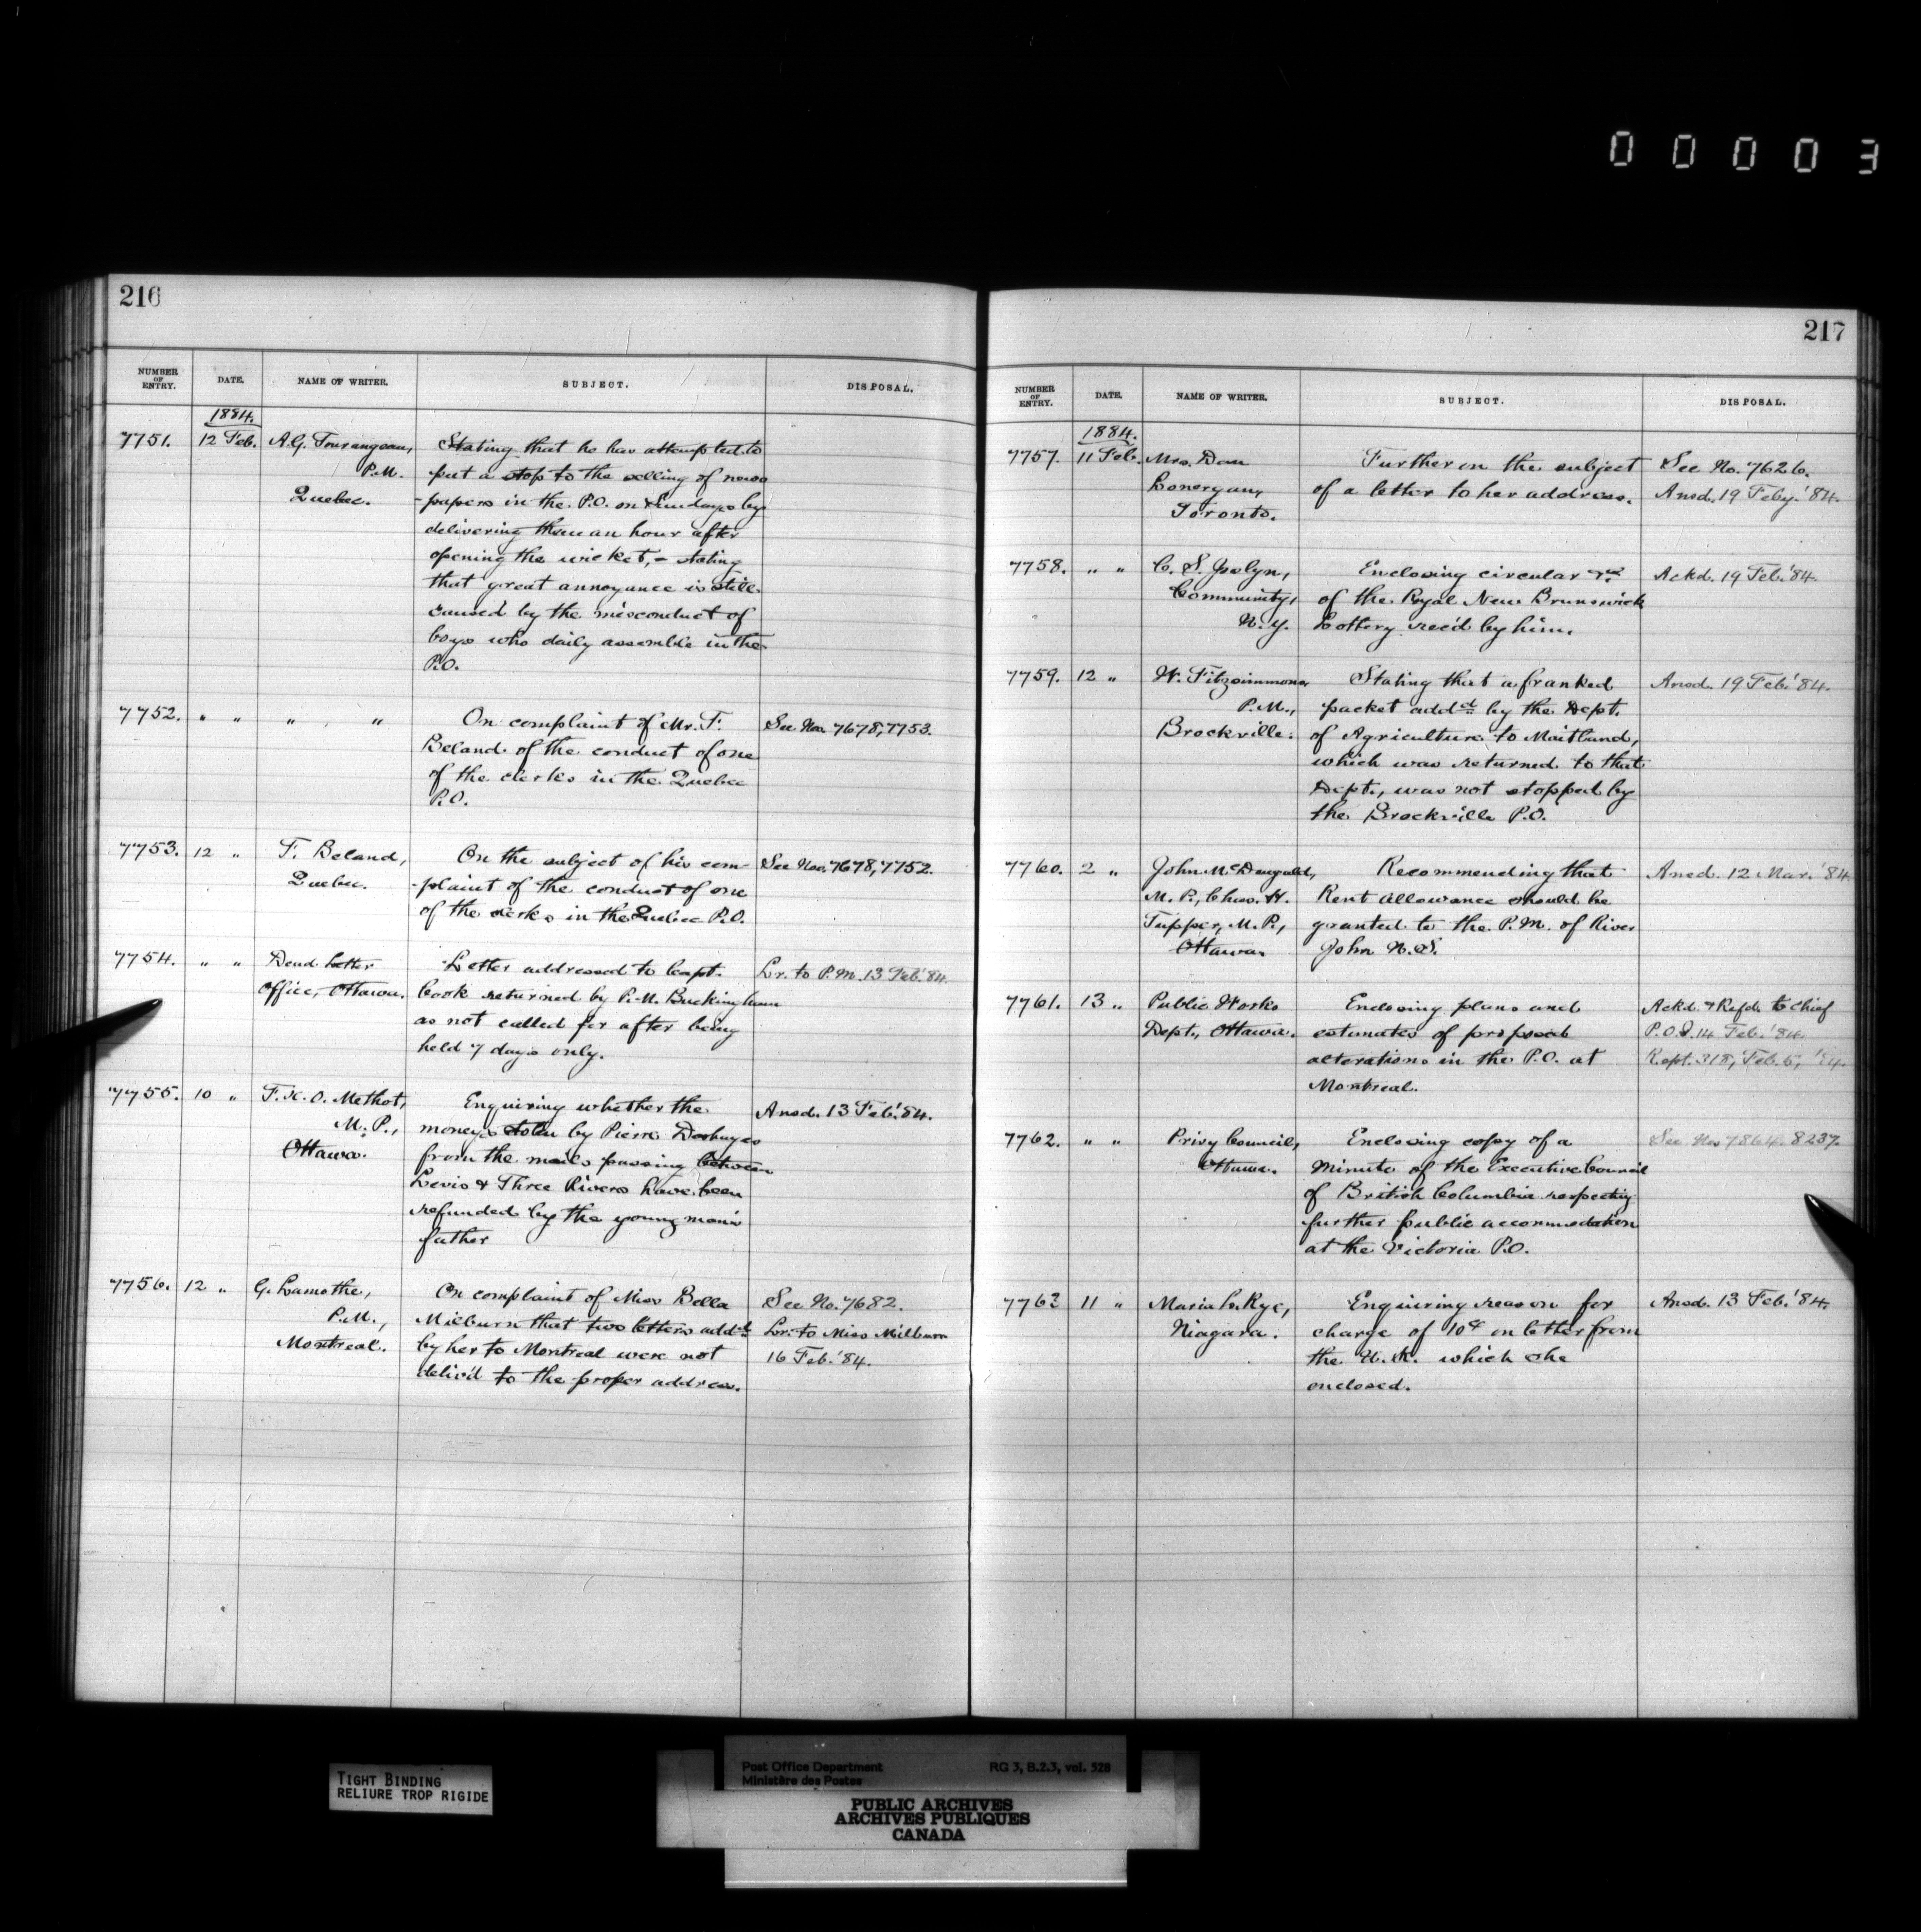 00003
216
NUMBER OF ENTRY. DATE. NAME OF WRITER. SUBJECT. DISPOSAL.
1884.
7751. 12 Feb. A.G. Tourangeau, Stating that he has attempted to
P.M. put a stop to the selling of news
Quebec. -papers in the P.O. on Sundays by
delivering them an hour after
opening the wicket, - stating
that great annoyance is still
caused by the misconduct of
boys who daily assemble in the
P.O.
7752. " " " " On complaint of Mr. F. See Nos. 7678, 7753.
Beland of the conduct of one
of the clerks in the Quebec
P.O.
7753. 12 " F. Beland, On the subject of his com- See Nos. 7678, 7752.
Quebec. -plaint of the conduct of one
of the clerks in the Quebec P.O.
7754. " " Dead Letter Letter addressed to Capt. Lr. to P.M. 13 Feb. '84.
Office, Ottawa. Cook returned by P.M. Buckingham
as not called for after being
held 7 days only.
7755. 10 " F.X.O. Methot, Enquiring whether the Ansd. 13 Feb. '84.
M.P., moneys stolen by Pierre Deshayes
Ottawa. from the mails passing between
Levis & Three Rivers have been
refunded by the young man's
father
7756. 12 " G. Lamothe, On complaint of Miss Bella See No. 7682.
P.M., Milburn that two letters addd Lr. to Miss Milburn
Montreal. by her to Montreal were not 16 Feb. '84.
deliv'd to the proper address.
217
NUMBER OF ENTRY. DATE. NAME OF WRITER. SUBJECT. DISPOSAL.
1884.
7757. 11 Feb. Mrs. Dan Further on the subject See No. 7626.
Lonergan, of a letter to her address. Ansd. 19 Feby. '84.
Toronto.
7758. " " C. S. Joslyn, Enclosing circular &c Ackd. 19 Feb. '84.
Community, of the Royal New Brunswick
N.Y. Lottery rec'd by him.
7759. 12 " W. Fitzsimmons, Stating that a franked Ansd. 19 Feb. '84.
P.M., packet addd by the Dept.
Brockville. of Agriculture to Maitland,
which was returned to that
Dept., was not stopped by
the Brockville P.O.
7760. 2 " John McDougald, Recommending that Ansd. 12 Mar. '84.
M.P., Chas. H. Rent allowance should be
Tupper, M.P., granted to the P.M. of River
Ottawa. John N.S.
7761. 13 " Public Works Enclosing plans and Ackd. & Refd. to Chief
Dept., Ottawa. estimates of proposed P.O.I. 14 Feb. '84.
alterations in the P.O. at Rept. 318, Feb. 5, '84.
Montreal.
7762. " " Privy Council, Enclosing copy of a See Nos 7864. 8237.
Ottawa. Minute of the Executive Council
of British Columbia respecting
further public accommodation
at the Victoria P.O.
7763 11 " Maria S. Rye, Enquiring reason for Ansd. 13 Feb. '84.
Niagara. charge of 10c on letter from
the U.K. which she
enclosed.
TIGHT BINDING
RELIURE TROP RIGIDE
Post Office Department RG 3, B.2.3, vol. 528
Ministère des Postes
PUBLIC ARCHIVES
ARCHIVES PUBLIQUES
CANADA